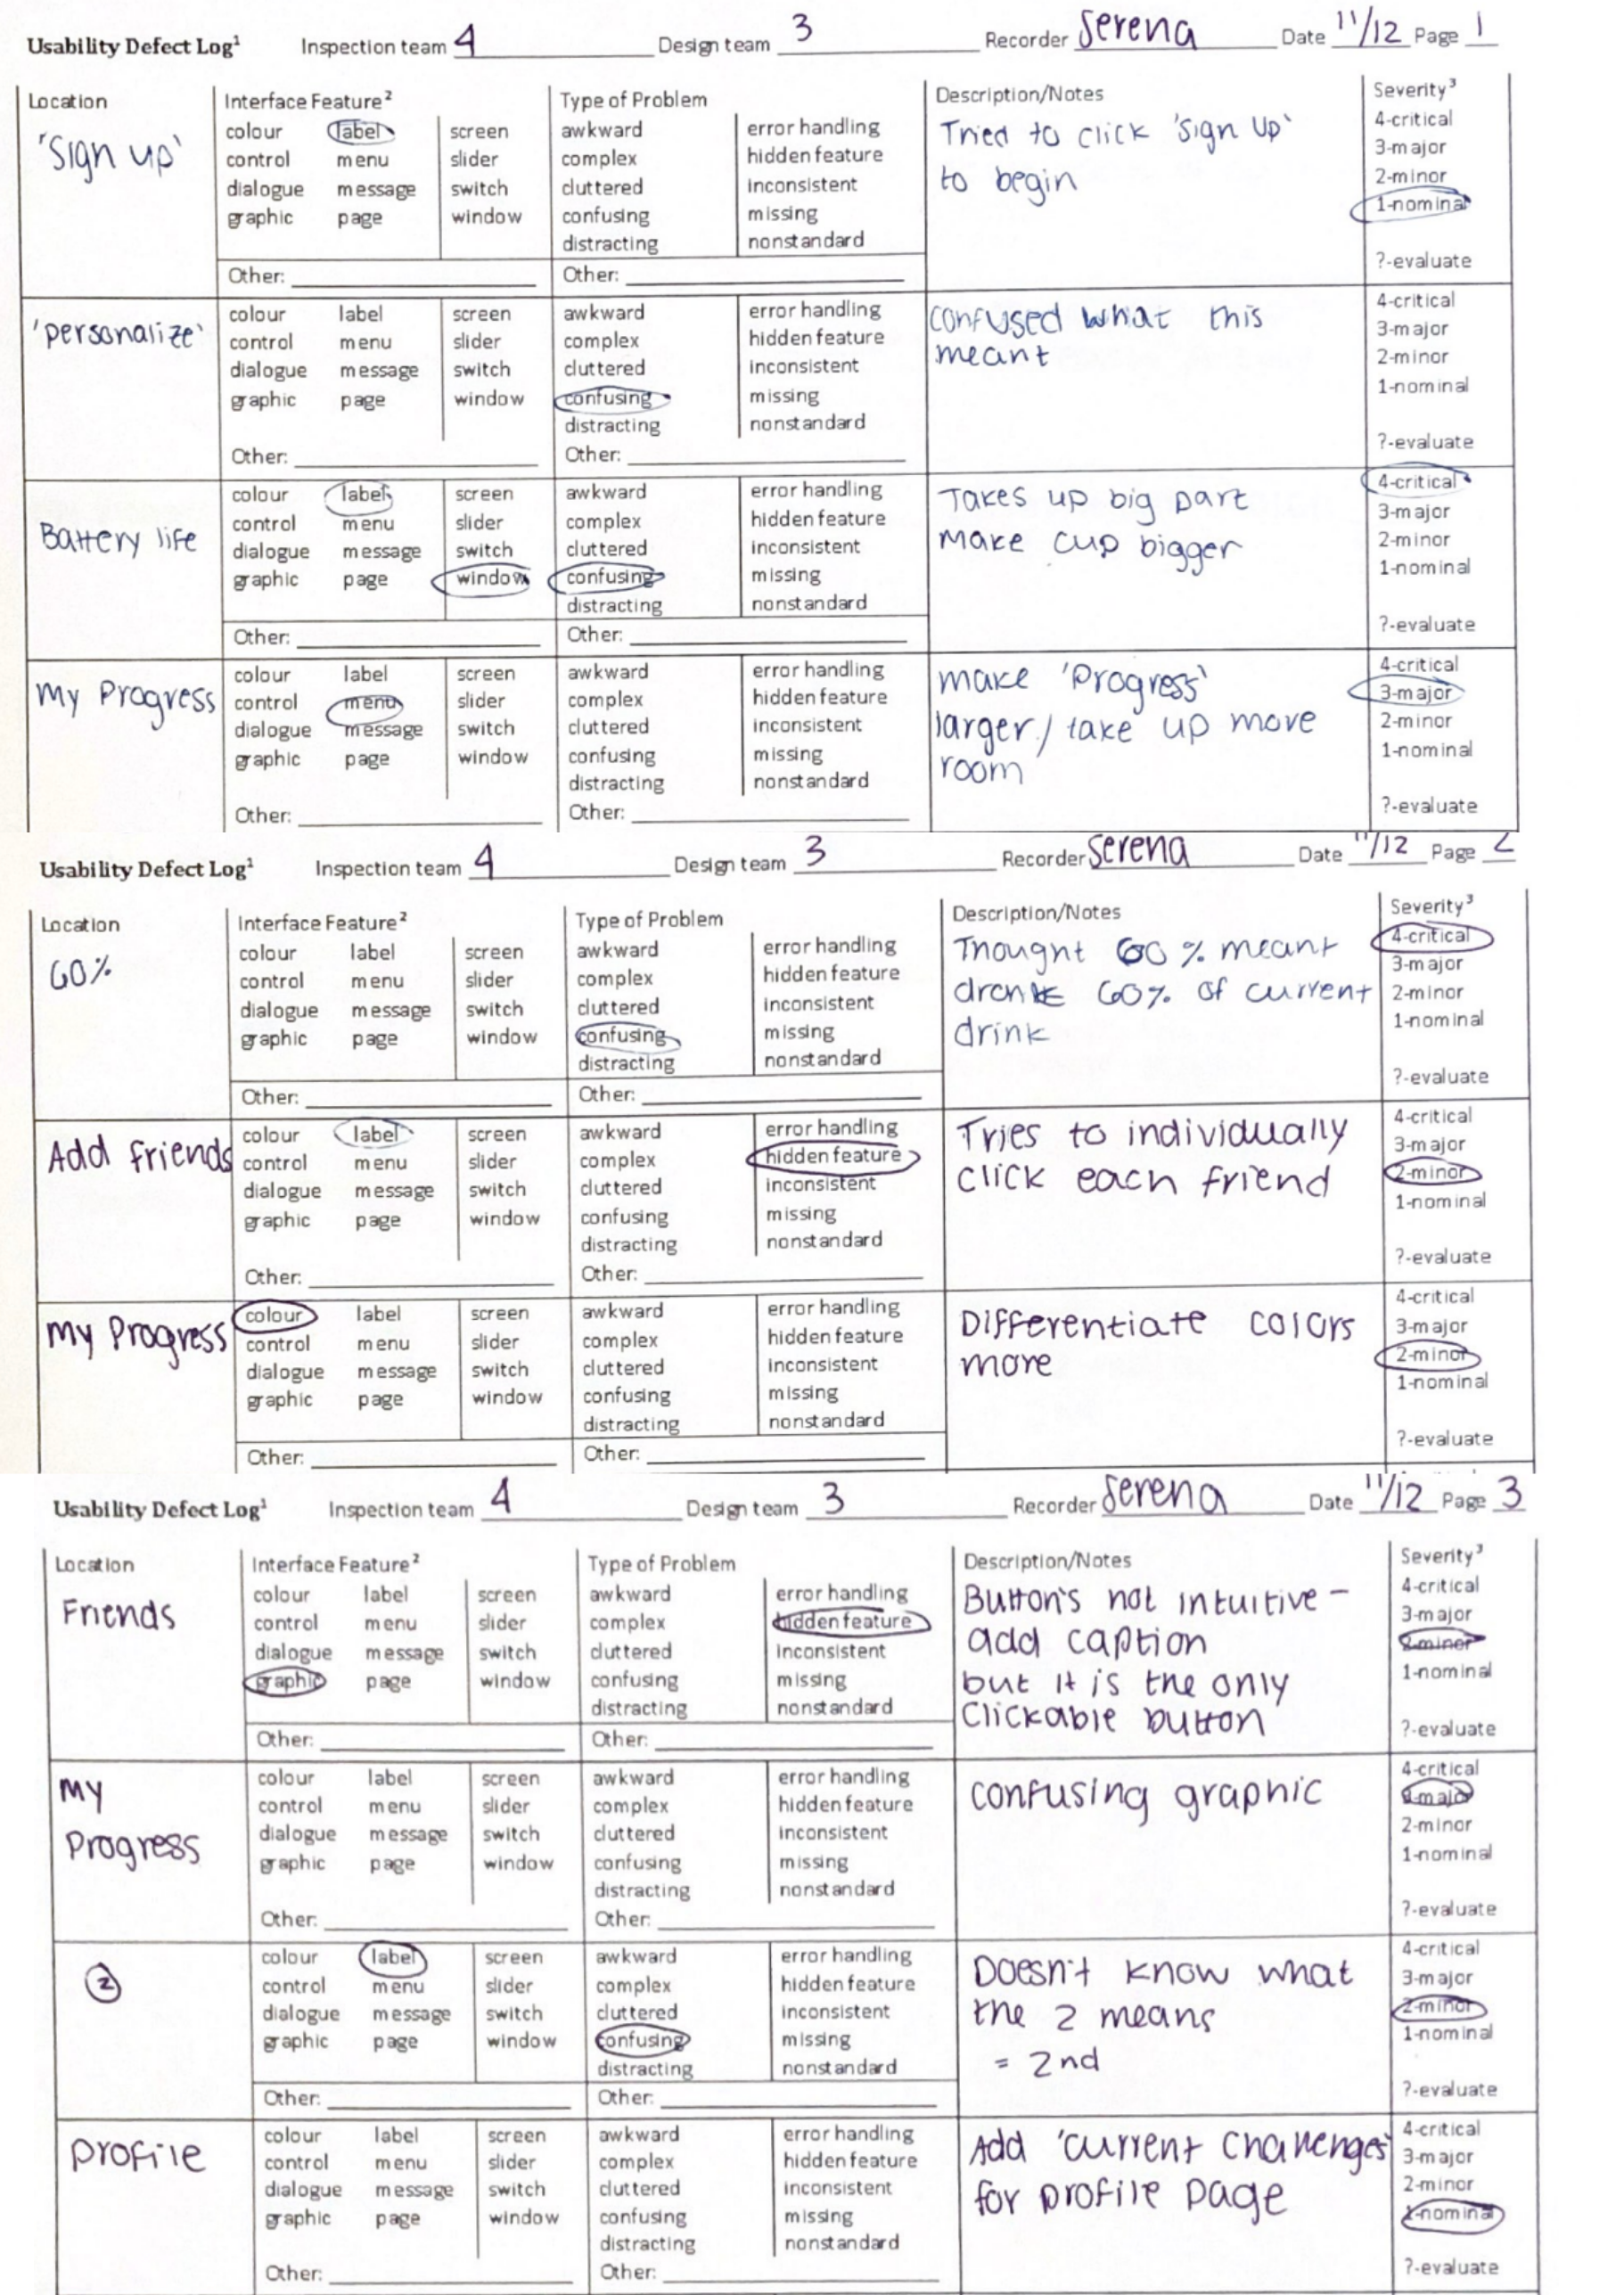 Usability Defect Log¹ Inspection team 4 Design team 3 Recorder Serena Date 11/12 Page 1
Location Interface Feature² Type of Problem Description/Notes Severity³
'Sign up'
colour label screen
control menu slider
dialogue message switch
graphic page window
Other:
awkward error handling
complex hidden feature
cluttered inconsistent
confusing missing
distracting nonstandard
Other:
Tried to click 'Sign Up'
to begin
4-critical
3-major
2-minor
1-nominal
?-evaluate
'personalize'
colour label screen
control menu slider
dialogue message switch
graphic page window
Other:
awkward error handling
complex hidden feature
cluttered inconsistent
confusing missing
distracting nonstandard
Other:
confused what this
meant
4-critical
3-major
2-minor
1-nominal
?-evaluate
Battery life
colour label screen
control menu slider
dialogue message switch
graphic page window
Other:
awkward error handling
complex hidden feature
cluttered inconsistent
confusing missing
distracting nonstandard
Other:
Takes up big part
make cup bigger
4-critical
3-major
2-minor
1-nominal
?-evaluate
My Progress
colour label screen
control menu slider
dialogue message switch
graphic page window
Other:
awkward error handling
complex hidden feature
cluttered inconsistent
confusing missing
distracting nonstandard
Other:
make 'Progress'
larger / take up more
room
4-critical
3-major
2-minor
1-nominal
?-evaluate
Usability Defect Log¹ Inspection team 4 Design team 3 Recorder Serena Date 11/12 Page 2
Location Interface Feature² Type of Problem Description/Notes Severity³
60%
colour label screen
control menu slider
dialogue message switch
graphic page window
Other:
awkward error handling
complex hidden feature
cluttered inconsistent
confusing missing
distracting nonstandard
Other:
Thought 60% meant
drank 60% of current
drink
4-critical
3-major
2-minor
1-nominal
?-evaluate
Add friends
colour label screen
control menu slider
dialogue message switch
graphic page window
Other:
awkward error handling
complex hidden feature
cluttered inconsistent
confusing missing
distracting nonstandard
Other:
Tries to individually
click each friend
4-critical
3-major
2-minor
1-nominal
?-evaluate
My Progress
colour label screen
control menu slider
dialogue message switch
graphic page window
Other:
awkward error handling
complex hidden feature
cluttered inconsistent
confusing missing
distracting nonstandard
Other:
Differentiate colors
more
4-critical
3-major
2-minor
1-nominal
?-evaluate
Usability Defect Log¹ Inspection team 4 Design team 3 Recorder Serena Date 11/12 Page 3
Location Interface Feature² Type of Problem Description/Notes Severity³
Friends
colour label screen
control menu slider
dialogue message switch
graphic page window
Other:
awkward error handling
complex hidden feature
cluttered inconsistent
confusing missing
distracting nonstandard
Other:
Button's not intuitive –
add caption
but it is the only
clickable button
4-critical
3-major
2-minor
1-nominal
?-evaluate
My
Progress
colour label screen
control menu slider
dialogue message switch
graphic page window
Other:
awkward error handling
complex hidden feature
cluttered inconsistent
confusing missing
distracting nonstandard
Other:
confusing graphic
4-critical
3-major
2-minor
1-nominal
?-evaluate
②
colour label screen
control menu slider
dialogue message switch
graphic page window
Other:
awkward error handling
complex hidden feature
cluttered inconsistent
confusing missing
distracting nonstandard
Other:
Doesn't know what
the 2 means
= 2nd
4-critical
3-major
2-minor
1-nominal
?-evaluate
profile
colour label screen
control menu slider
dialogue message switch
graphic page window
Other:
awkward error handling
complex hidden feature
cluttered inconsistent
confusing missing
distracting nonstandard
Other:
Add 'current challenges'
for profile page
4-critical
3-major
2-minor
1-nominal
?-evaluate